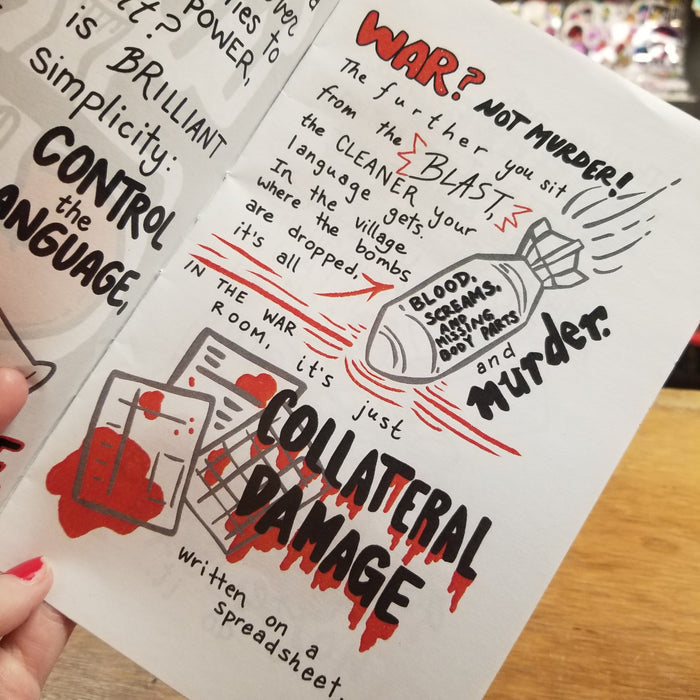 it? POWER,
is BRILLIANT
simplicity:
CONTROL
the
ANGUAGE,
WAR? NOT MURDER!
The further you sit
from the BLAST,
the CLEANER your
language gets.
In the village
where the bombs
are dropped,
it's all
BLOOD,
SCREAMS,
AND
MISSING
BODY PARTS
and
murder.
IN THE WAR
ROOM, it's just
COLLATERAL
DAMAGE
written on a
spreadsheet.